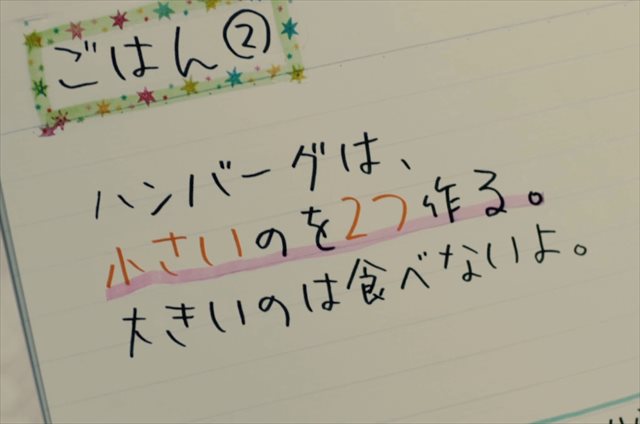 ごはん②
ハンバーグは、
小さいのを2つ作る。
大きいのは食べないよ。